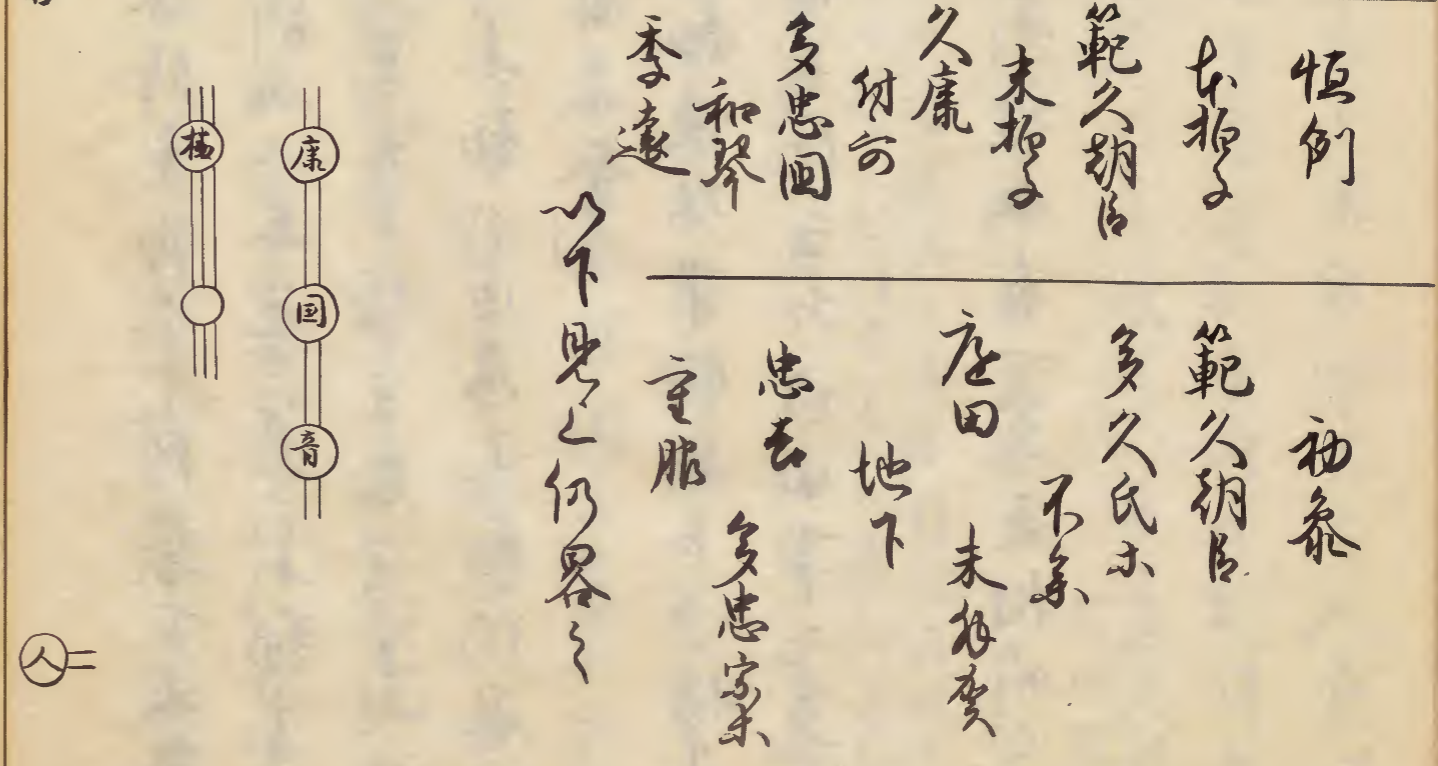 恒例
本拍子
範久朝臣
末拍子
久康
付哥
多忠囶
和琴
季遠
初参
範久朝臣
多久氏ホ
不参
庭田
未拝賀
地下
忠音
多忠宗ホ
重服
以下見上仍畧之
康
国
音
人